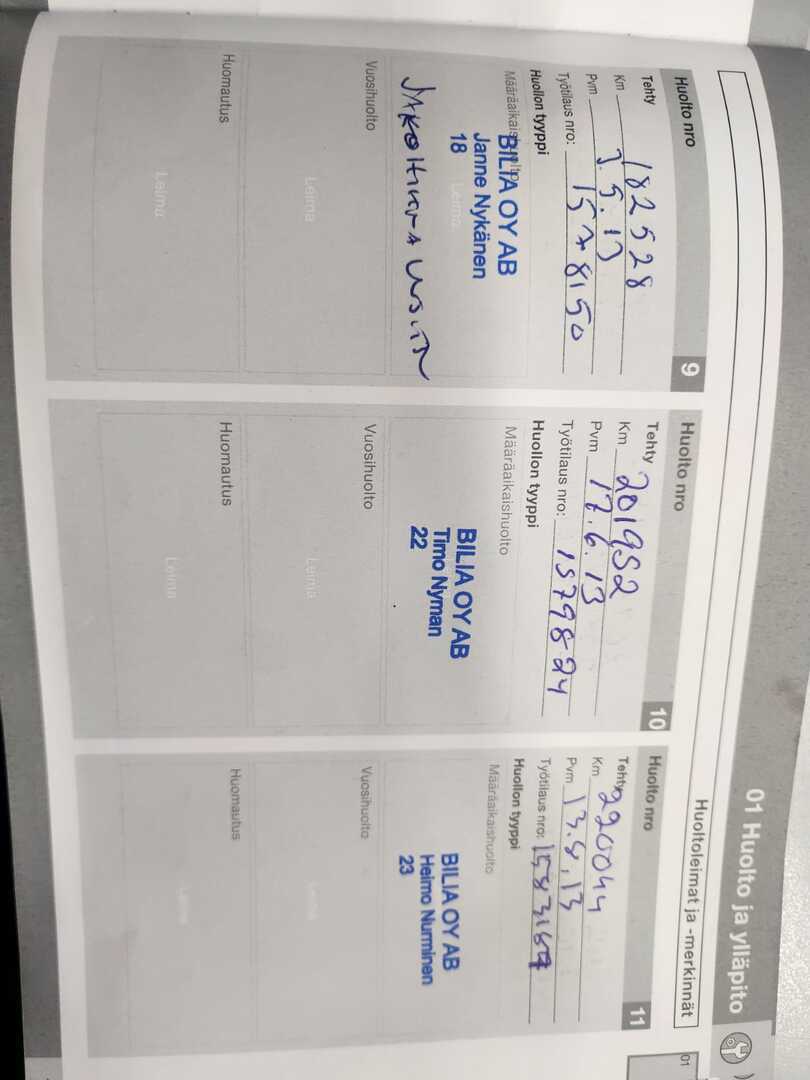 01 Huolto ja ylläpito
Huoltoleimat ja -merkinnät
01
Huolto nro 9
Tehty
Km 182528
Pvm 3.5.13
Työtilaus nro: 1578150
Huollon tyyppi
Määräaikaishuolto
BILIA OY AB
Janne Nykänen
18
Leima
JAKOHIHNA UUSITTU
Vuosihuolto
Leima
Huomautus
Leima
Huolto nro 10
Tehty
Km 201952
Pvm 17.6.13
Työtilaus nro: 1579824
Huollon tyyppi
Määräaikaishuolto
BILIA OY AB
Timo Nyman
22
Vuosihuolto
Leima
Huomautus
Leima
Huolto nro 11
Tehty
Km 220044
Pvm 13.8.13
Työtilaus nro: 1583167
Huollon tyyppi
Määräaikaishuolto
BILIA OY AB
Heimo Nurminen
23
Vuosihuolto
Leima
Huomautus
Leima